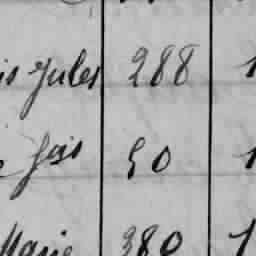 is Jules 288 1
e fois 50 1
Marie 380 1